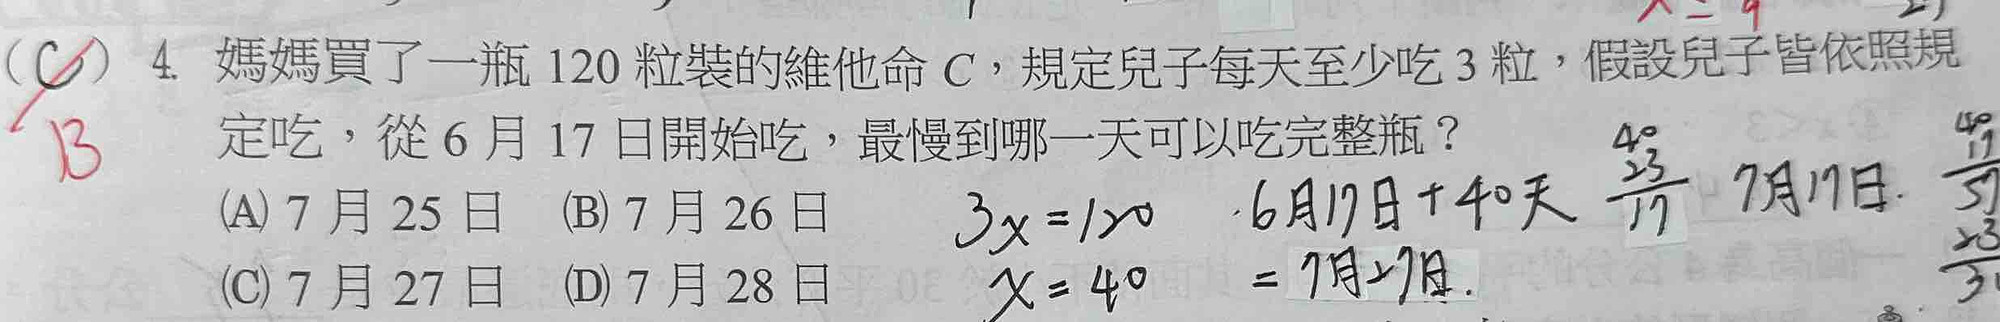 (C) 4. 媽媽買了一瓶 120 粒裝的維他命 C，規定兒子每天至少吃 3 粒，假設兒子皆依照規
B
定吃，從 6 月 17 日開始吃，最慢到哪一天可以吃完整瓶？
(A) 7 月 25 日 (B) 7 月 26 日
(C) 7 月 27 日 (D) 7 月 28 日
3x=120
x=40
6月17日+40天
=7月27日.
40
23
17
7月17日.
40
17
57